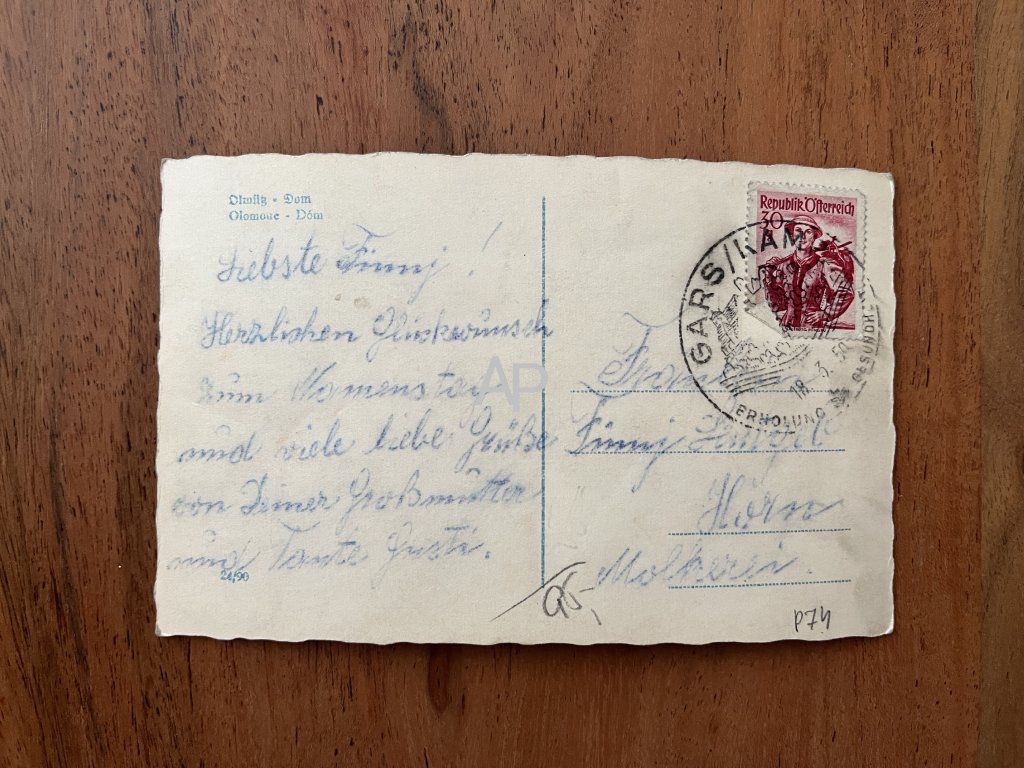 Olmütz - Dom
Olomouc - Dóm
Liebste Finny!
Herzlichen Glückwunsch
zum Namenstag
und viele liebe Grüße
von Deiner Großmutter
und Tante Gusti.
24/90
Republik Österreich
30 g
GARS/KAMP
18. 3. 50
ERHOLUNG
GESUNDHEIT
AP
Finny
Horn
Molkerei.
95,-
P74